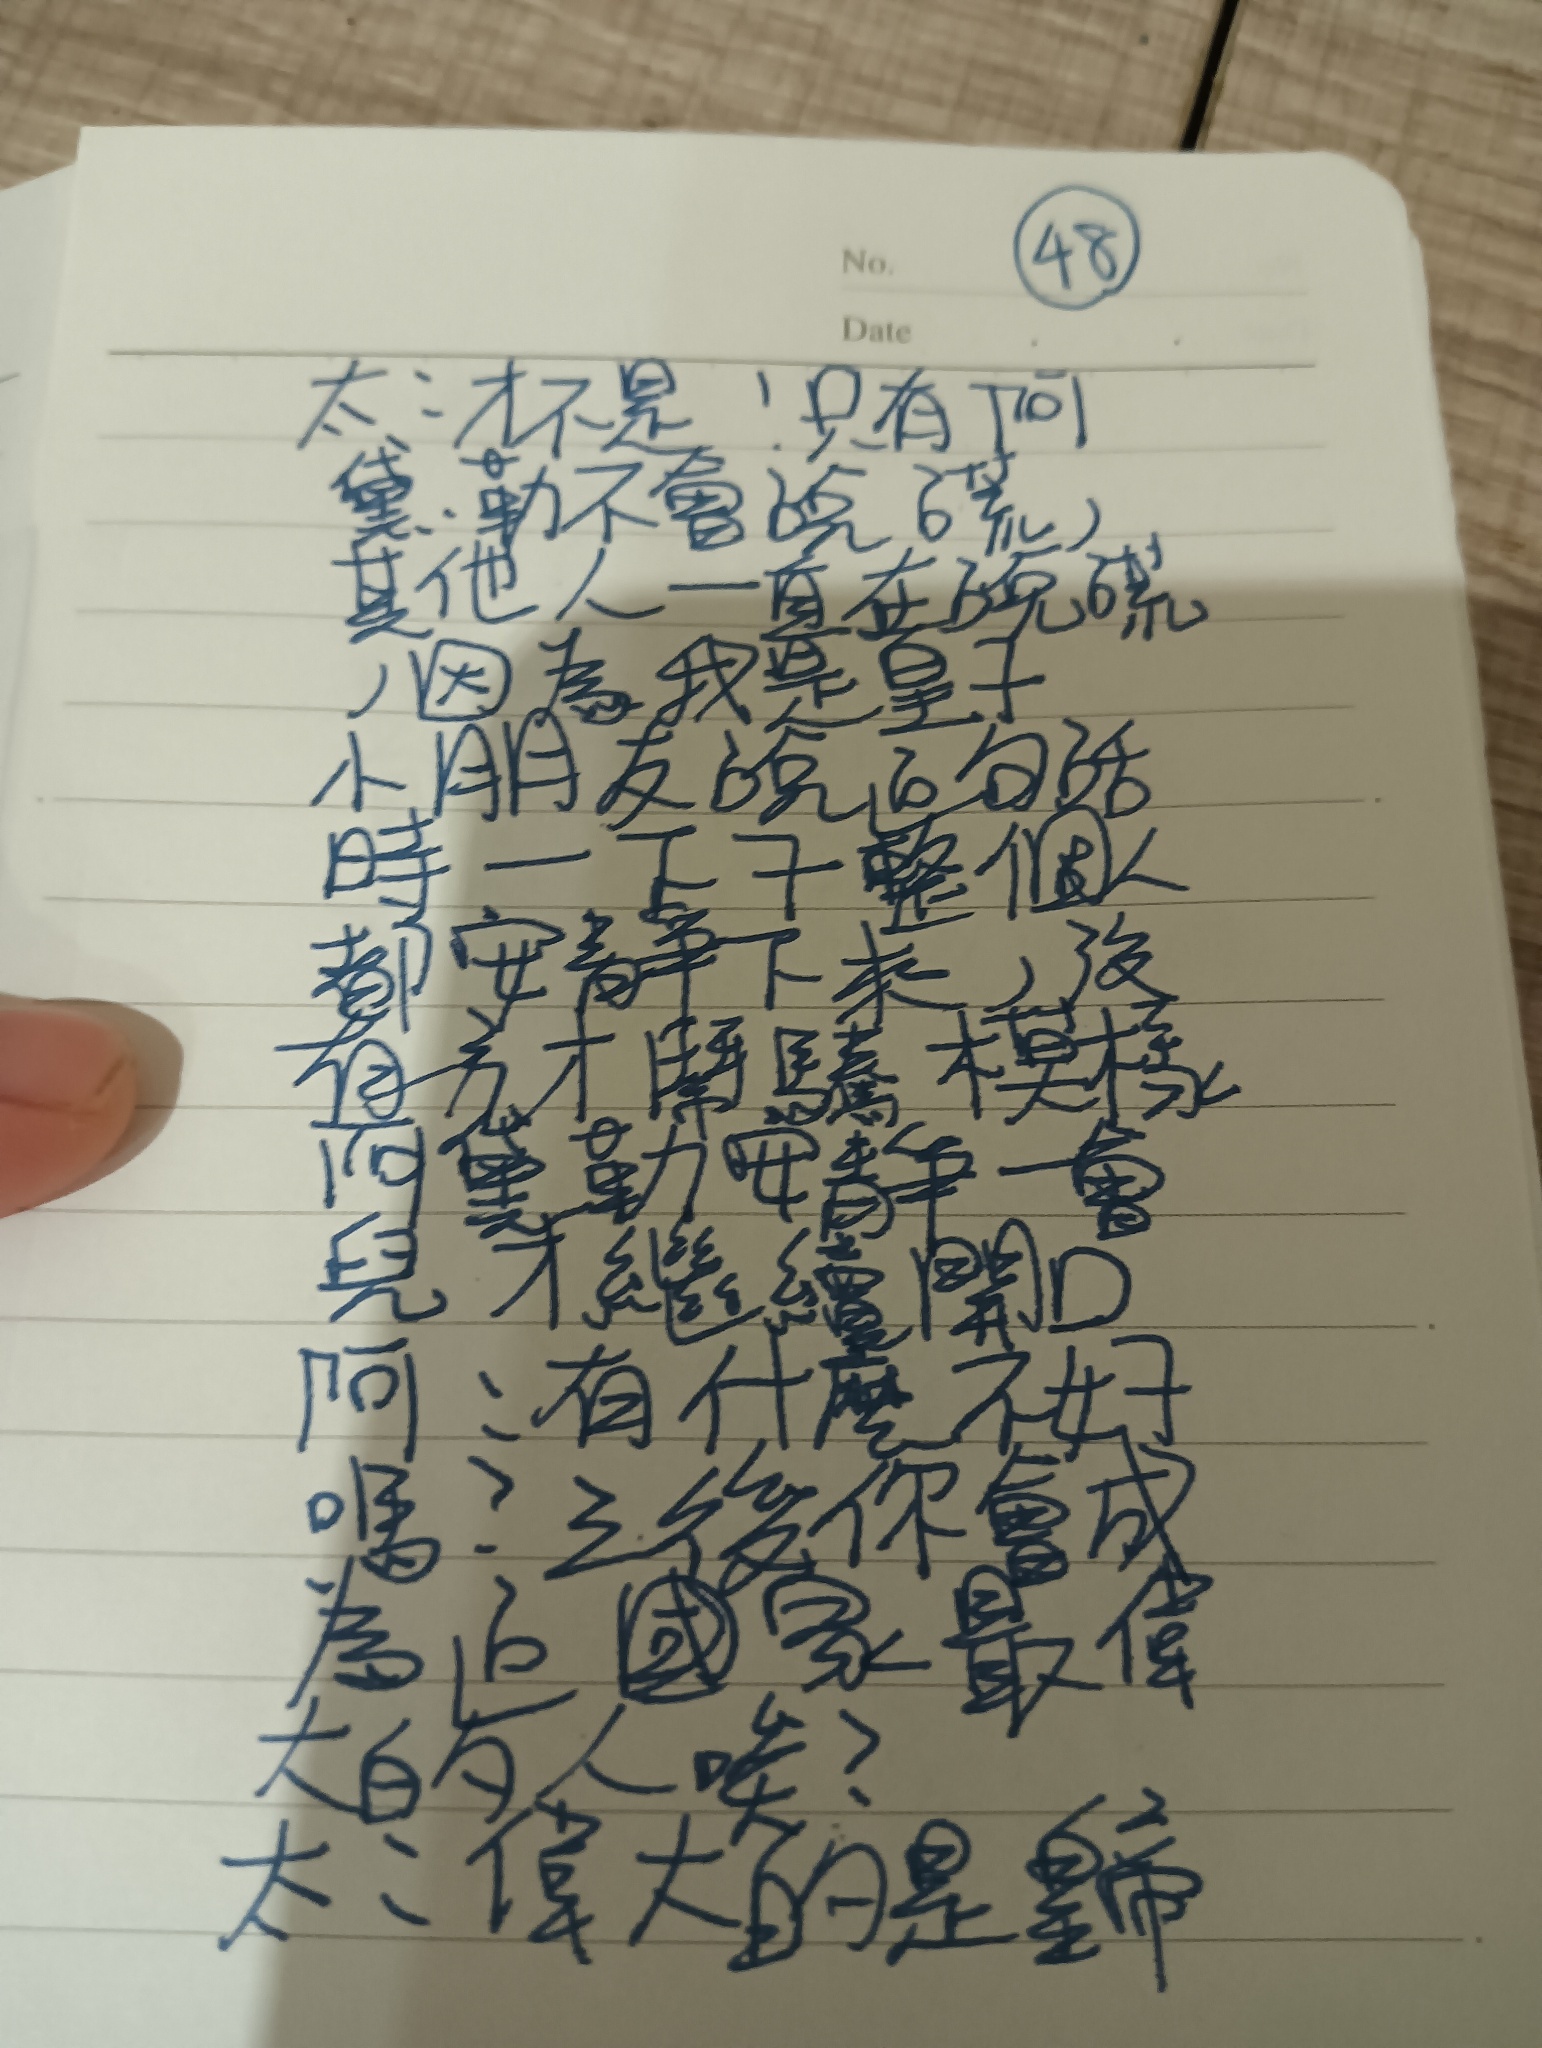 No. 48
Date
太：才不是！只有阿
黛勒不會說謊，
其他人一直在說謊
，因為我是皇子
小朋友說這句話
時一下子整個人
都安靜下來，沒
有方才鬧騰模樣
阿黛勒安靜一會
兒才繼續開口
阿：有什麼不好
嗎？之後你會成
為這國家最偉
大的人唉？
太：偉大的是皇帝